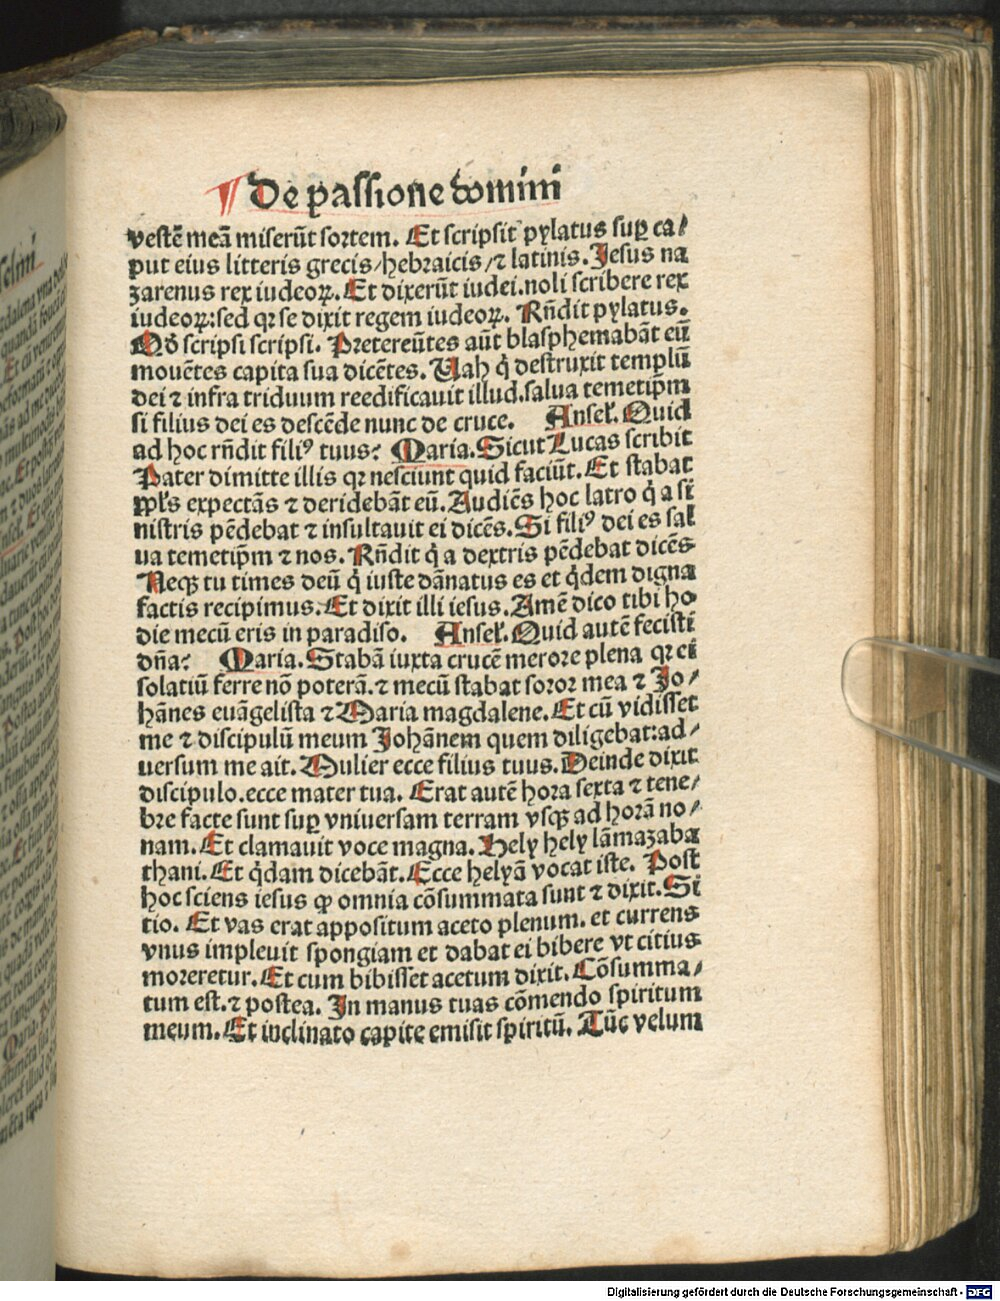 ¶ De passione domini
vestē meā miserūt sortem. Et scripsit pylatus suꝑ ca⸗
put eius litteris grecis/hebraicis/⁊ latinis. Jesus na
zarenus rex iudeoꝝ. Et dixerūt iudei.noli scribere rex
iudeoꝝ:sed qꝛ se dixit regem iudeoꝝ. Rn̄dit pylatus.
Qḋ scripsi scripsi. Pretereūtes aūt blasphemabāt eū
mouētes capita sua dicētes. Vah q̇ destruxit templū
dei ⁊ infra triduum reedificauit illud.salua temetip̄m
si filius dei es descēde nunc de cruce. Anseł. Quid
ad hoc rn̄dit filiꝰ tuus? Maria. Sicut Lucas scribit
Pater dimitte illis qꝛ nesciunt quid faciūt. Et stabat
ppl̄s expectās ⁊ deridebāt eū. Audiēs hoc latro q̇ a si
nistris pēdebat ⁊ insultauit ei dicēs. Si filiꝰ dei es sal
ua temetip̄m ⁊ nos. Rn̄dit q̇ a dextris pēdebat dicēs
Neqꝫ tu times deū q̇ iuste dānatus es et q̇dem digna
factis recipimus. Et dixit illi iesus. Amē dico tibi ho
die mecū eris in paradiso. Anseł. Quid autē fecisti
dn̄a? Maria. Stabā iuxta crucē merore plena qꝛ ei
solatiū ferre nō poterā.⁊ mecū stabat soror mea ⁊ Jo⸗
hānes euāgelista ⁊ Maria magdalene. Et cū vidisset
me ⁊ discipulū meum Johānem quem diligebat:ad⸗
uersum me ait. Mulier ecce filius tuus. Deinde dixit
discipulo.ecce mater tua. Erat autē hora sexta ⁊ tene⸗
bre facte sunt suꝑ vniuersam terram vsqꝫ ad horā no⸗
nam. Et clamauit voce magna. Hely hely lāmazaba
thani. Et q̇dam dicebāt. Ecce helyā vocat iste. Post
hoc sciens iesus ꝙ omnia cōsummata sunt ⁊ dixit. Si
tio. Et vas erat appositum aceto plenum. et currens
vnus impleuit spongiam et dabat ei bibere vt citius
moreretur. Et cum bibisset acetum dixit. Cōsumma⸗
tum est.⁊ postea. In manus tuas cōmendo spiritum
meum. Et inclinato capite emisit spiritū. Tūc velum
Digitalisierung gefördert durch die Deutsche Forschungsgemeinschaft - DFG